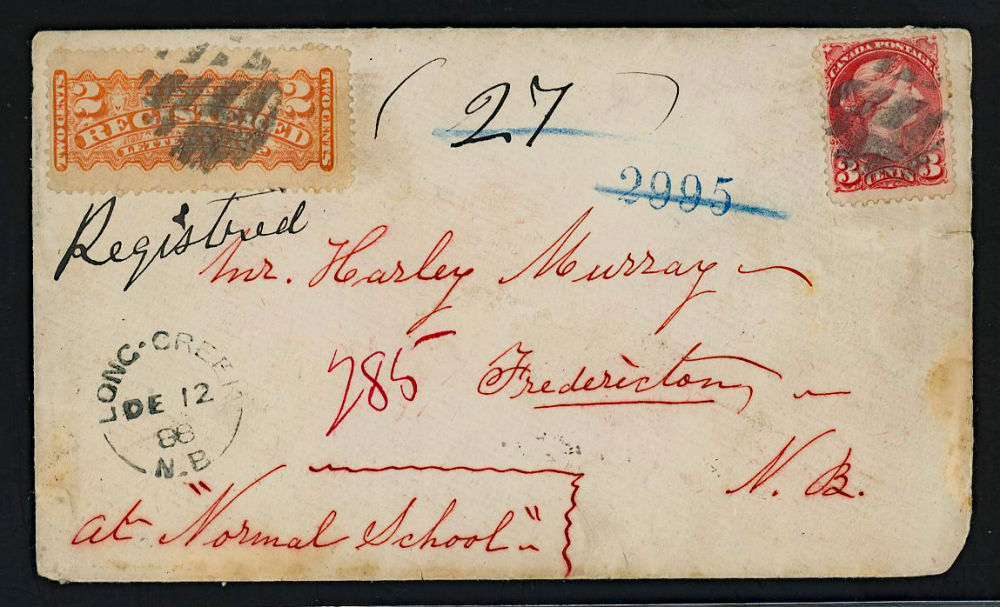 TWO CENTS
2 REGISTERED 2
LETTER
TWO CENTS
( 27 )
CANADA POSTAGE
3 CENTS 3
2995
Registred
Mr. Harley Murray
785 Fredericton,
N. B.
LONG-CREEK
DE 12
88
N.B
at "Normal School"